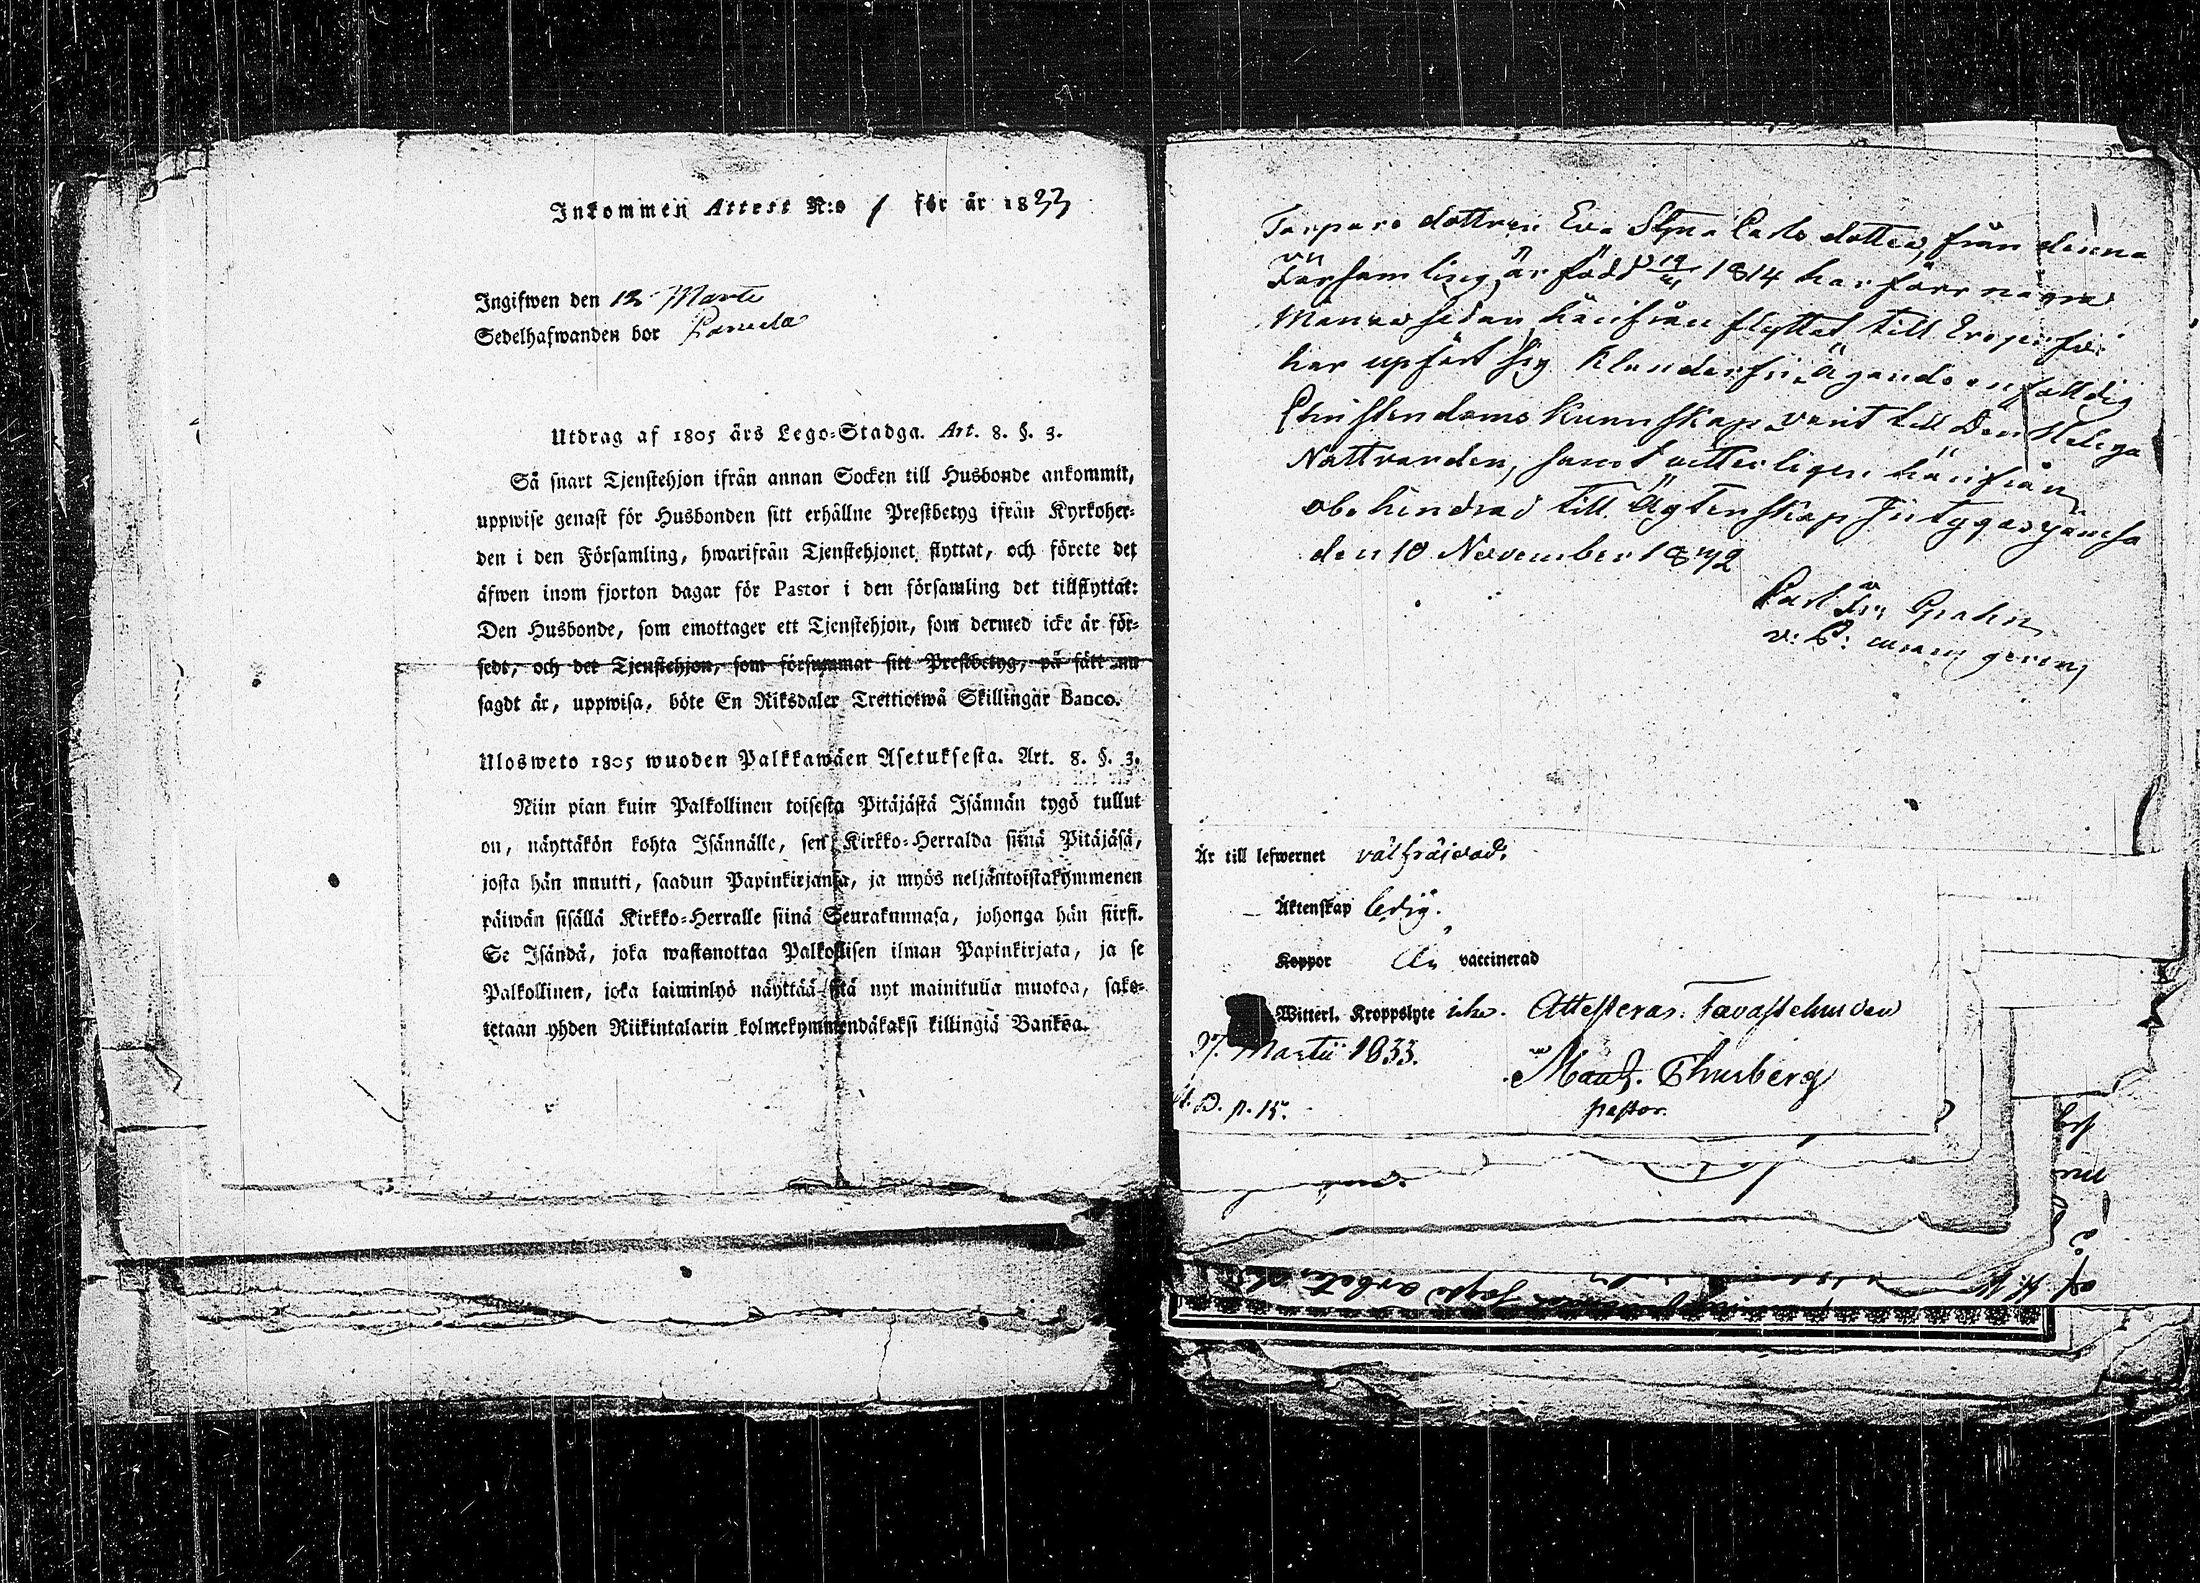 Inkommen Attest N:o 1 för år 1833
Ingifwen den 12 Martii
Sedelhafwanden bor
Utdrag af 1805 års Lego-Stadga. Art. 8. §. 3.
Så snart Tjenstehjon ifrån annan Socken till Husbonde ankommit,
uppwise genast för Husbonden sitt erhållne Prestbetyg ifrån Kyrkoher-
den i den Församling, hwarifrån Tjenstehjonet flyttat, och förete det
äfwen inom fjorton dagar för Pastor i den församling det tillflyttat:
Den Husbonde, som emottager ett Tjenstehjon, som dermed icke är för-
sedt, och det Tjenstehjon, som försummar sitt Prestbetyg, på sätt nu
sagdt är, uppwisa, böte En Riksdaler Trettiotwå Skillingar Banco.
Ulosweto 1805 wuoden Palkkawäen Asetuksesta. Art. 8. §. 3.
Niin pian kuin Palkollinen toisesta Pitäjästä Isännän tygö tullut
on, näyttäkön kohta Isännälle, sen Kirkko-Herralda siinä Pitäjäsä,
josta hän muutti, saadun Papinkirjansa, ja myös neljäntoistakymmenen
päiwän sisällä Kirkko-Herralle siinä Seurakunnasa, johonga hän siirsi.
Se Isändä, joka wastanottaa Palkollisen ilman Papinkirjata, ja se
Palkollinen, joka laiminlyö näyttää sitä nyt mainitulla muotoa, sako-
tetaan yhden Riikintalarin kolmekymmendäkaksi killingiä Bankoa.
Torpare dottren Eva Stina Carls dotter, från denna
Församling, är född 1814 har förr någre
Månar sedan härifrån flyttat till
har upfört sig klanderfri, Ägande enfalldig
Christendoms kunnskap, varit till Den Heliga
Nattvarden, samt vetterligen härifrån
obehindrad till Ägtenskap Intygas
den 10 November 1832
Carl Fr: Grahn
Är till lefwernet välfräjdad.
Äktenskap ledig.
Koppor Är vaccinerad
Witterl. Kroppslyte icke. Attesteras. Tavastehus den
27. Martii 1833.
Thusberg
pastor.
p. 15.